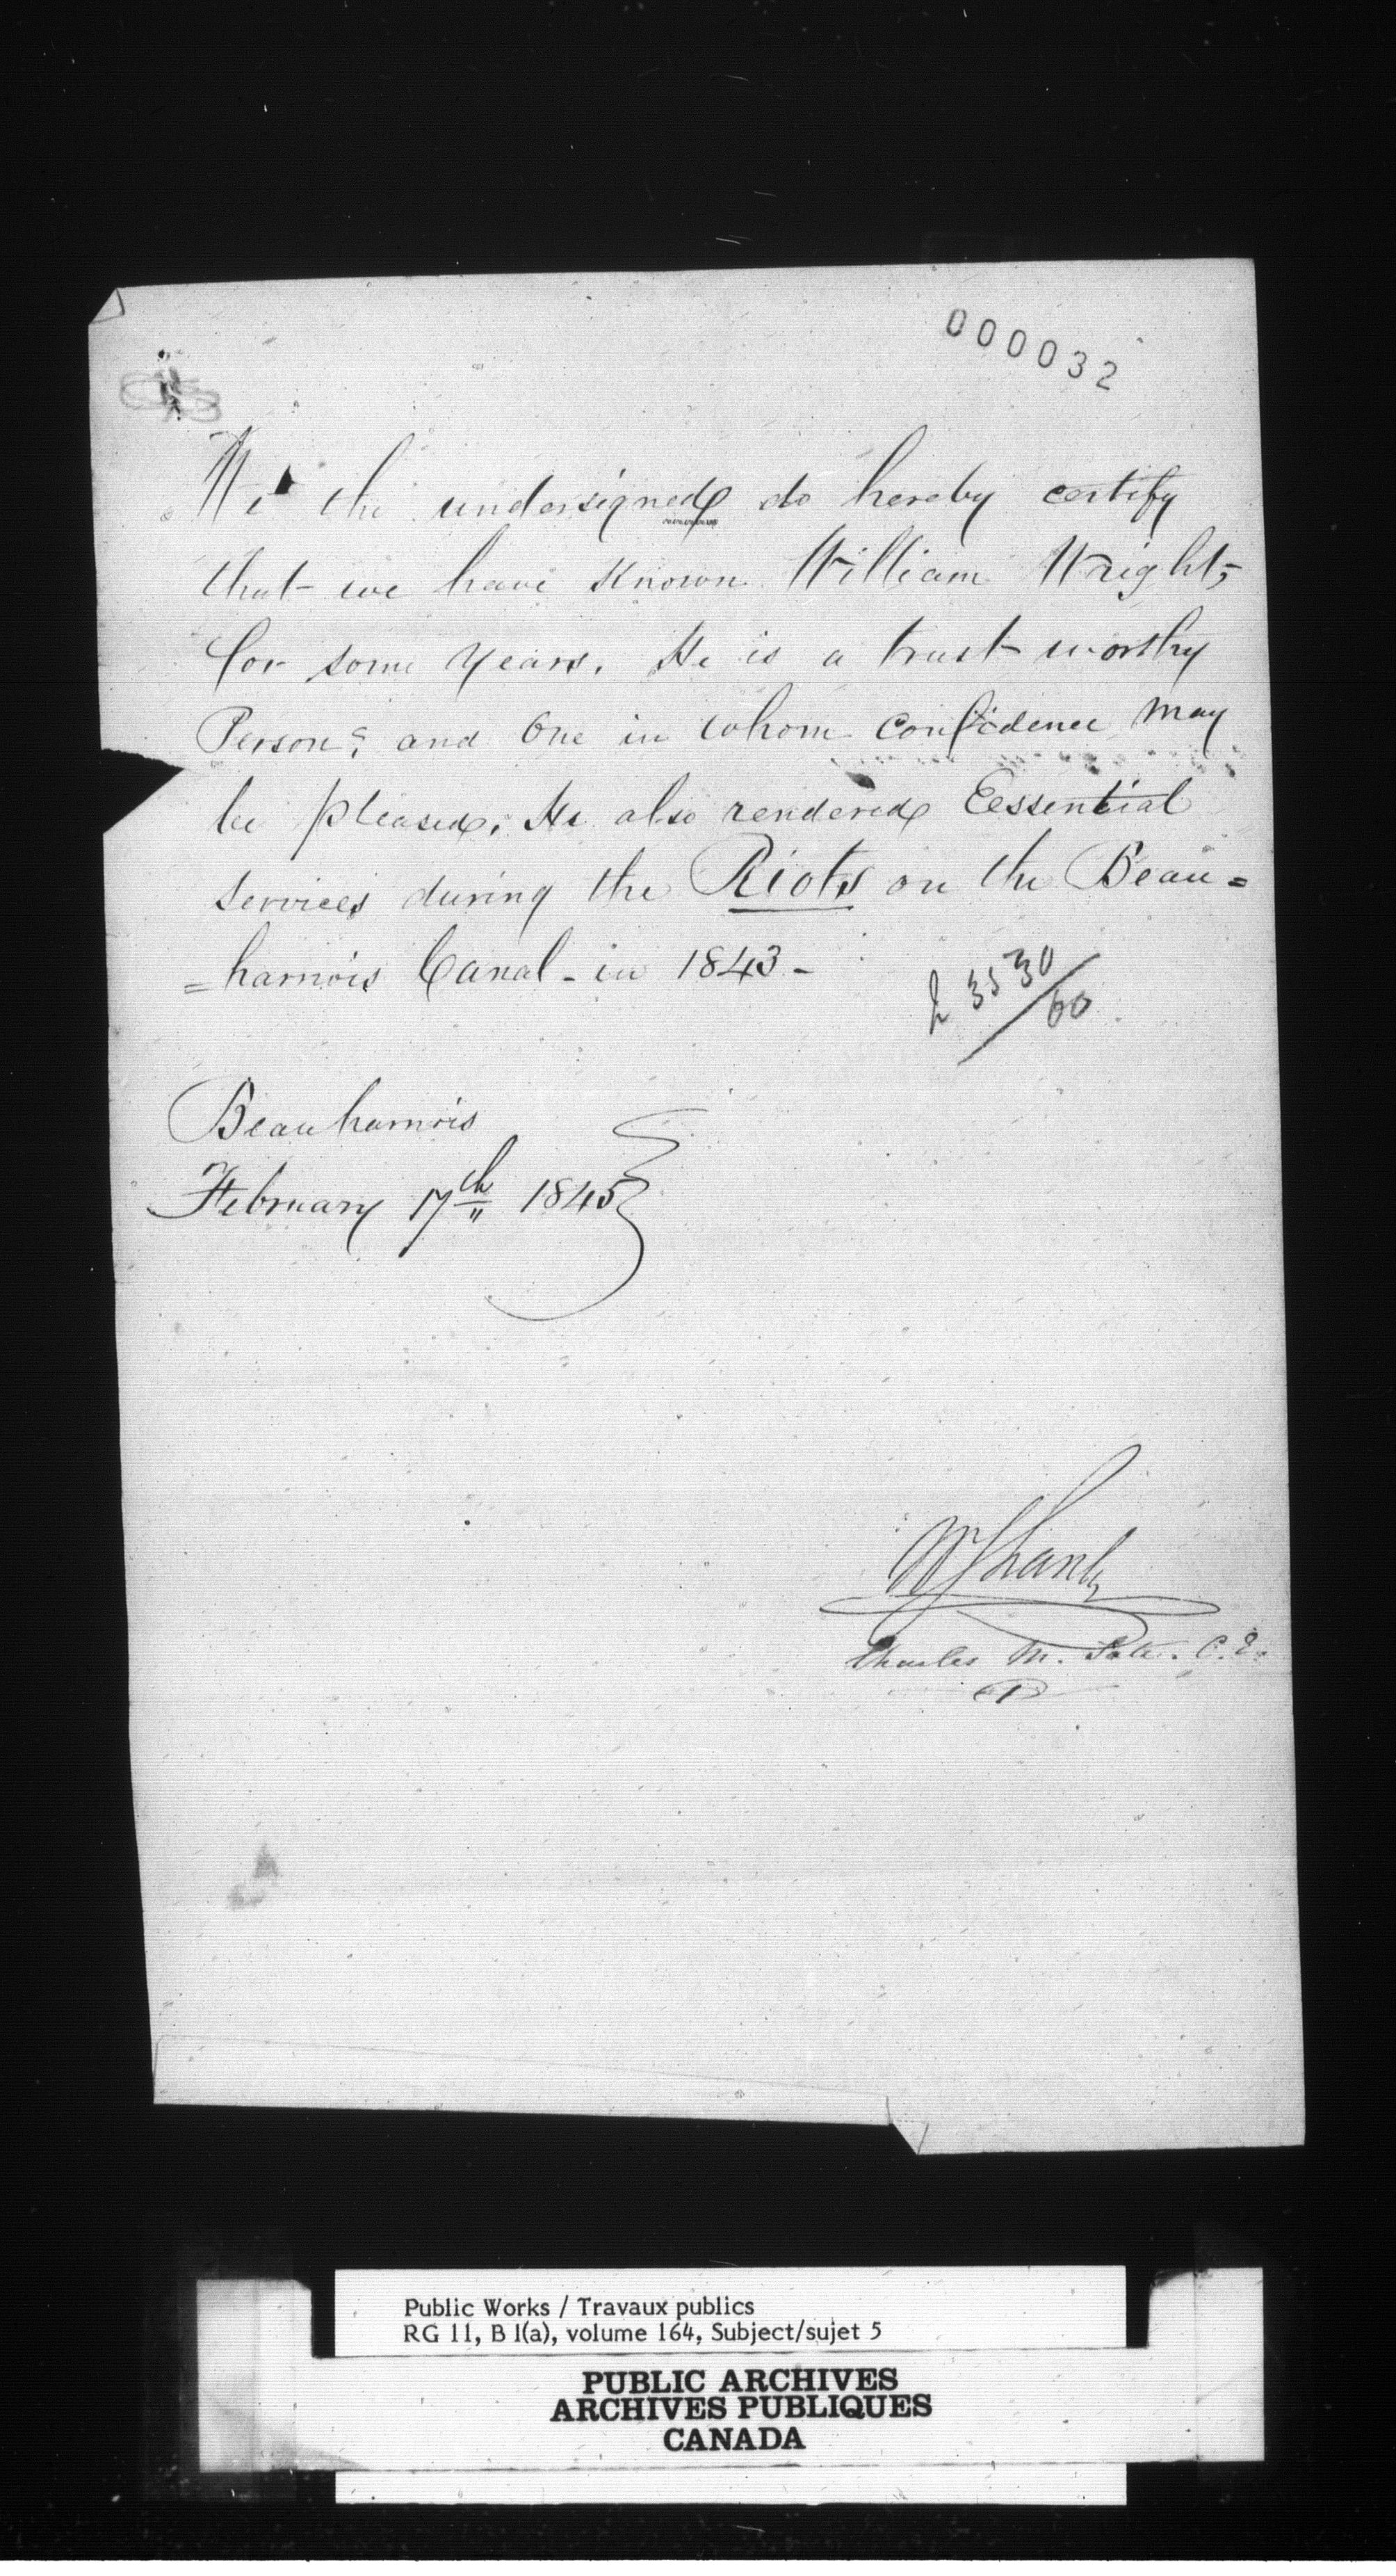 000032
We the undersigned do hereby certify
that we have Known William Wright,
for some Years. He is a trust worthy
Person; and One in whom Confidence May
be pleased. He also rendered Eessential
Services during the Riots on the Beau=
=harnois Canal - in 1843 -
Beauharnois
February 17th 1845
W Shanly
Charles M. Tate. C.E.
Public Works / Travaux publics
RG 11, B 1(a), volume 164, Subject/sujet 5
PUBLIC ARCHIVES
ARCHIVES PUBLIQUES
CANADA